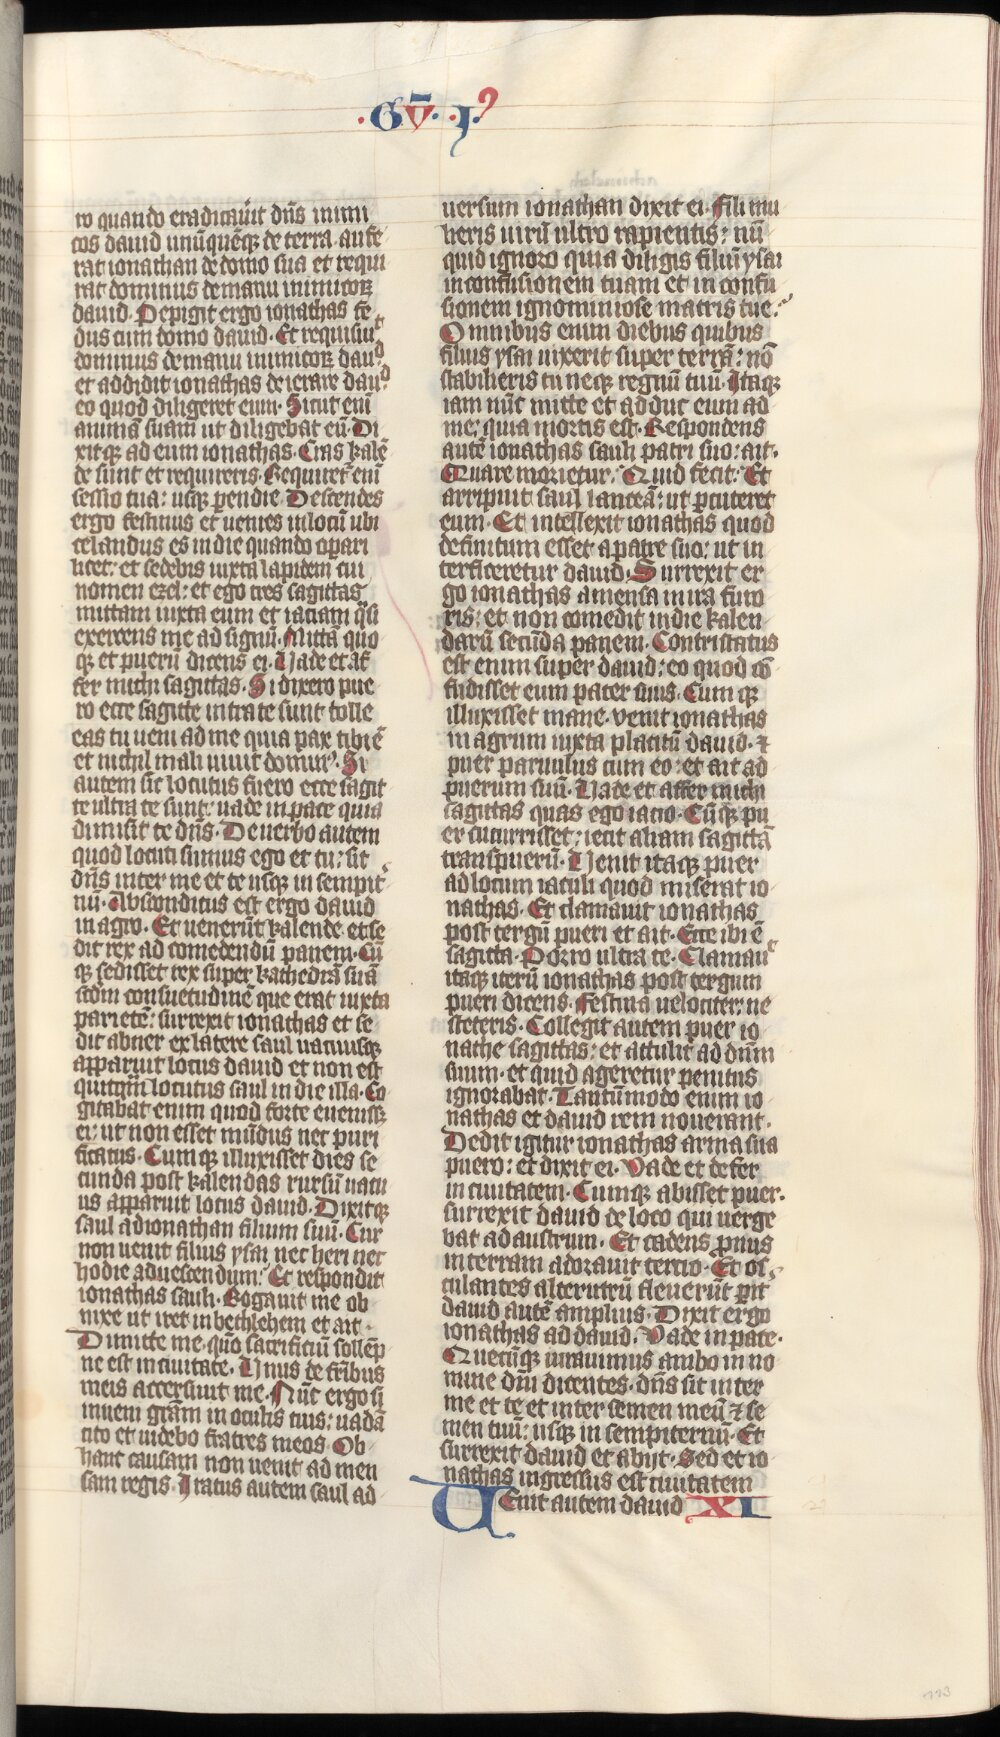 ·Gū· ·I9
ro quando eradicauit dn̄s inimi
cos dauid unūquēqꝫ de terra. aufe
rat ionathan de domo sua et requi
rat dominus de manu inimicoꝝ
dauid. Pepigit ergo ionathas fe
dus cum domo dauid. Et requisiuᵗ
dominus de manu inimicoꝝ dauᵈ
et addidit ionathas deierare dauᵈ
eo quod diligeret eum. Sicut eni᷑
animā suam ut diligebat eū. Di
xitqꝫ ad eum ionathas. Cras kalē
de sunt et requireris. Requiret᷑ eni᷑
sessio tua: usqꝫ pendie. Descendes
ergo festinus et uenies in locū ubi
celandus es in die quando opari
licet: et sedebis iuxta lapidem cui
nomen ezel: et ego tres sagittas
mittam iuxta eum et iaciam q̄si
exercens me ad signū. Mittā quo
qꝫ et puerū dicens ei. Vade et af
fer michi sagittas. Si dixero pue
ro ecce sagitte intra te sunt tolle
eas tu ueni ad me quia pax tibi ē
et nichil mali uiuit dominꝰ. Si
autem sic locutus fuero ecce sagit
te ultra te sunt: uade in pace quia
dimisit te dn̄s. De uerbo autem
quod locuti sumus ego et tu: sit
dn̄s inter me et te usqꝫ in sempitᶜ
nū. Absconditus est ergo dauid
in agro. Et uenerūt kalende et se
dit rex ad comedendū panem. Cū
qꝫ sedisset rex super kathedrā suā
scdm̄ consuetudinē que erat iuxta
parietē: surrexit ionathas et se
dit abner ex latere saul uacuusqꝫ
apparuit locus dauid et non est
quitq̄m locutus saul in die illa. Co
gitabat enim quod forte euenissꝫ
ei: ut non esset mūdus nec puri
ficatus. Cumqꝫ illuxisset dies se
cunda post kalendas rursū uacu
us apparuit locus dauid. Dixitqꝫ
saul ad ionathan filium suū. Cur
non uenit filius ysai nec heri nec
hodie aduescendum: Et respondit
ionathas sauli. Rogauit me ob
nixe ut iret in bethlehem et ait.
Dimitte me. quō sacrificiū sollēp
ne est in ciuitate. Vnus de fr̄ibus
meis accersiuit me. Nūc ergo si
inueni grām in oculis tuis: uadā
cito et uidebo fratres meos Ob
hanc causam non uenit ad men
sam regis. Iratus autem saul ad
uersum ionathan dixit ei. Fili mu
lieris uirū ultro rapientis: nū
quid ignoro quia diligis filiū ysai
in confusionem tuam et in confu
sionem ignominiose matris tue:
Omnibus enim diebus quibus
filius ysai uixerit super terrā: nō
stabilieris tu neqꝫ regnū tuū. Itaqꝫ
iam nūc mitte et adduc eum ad
me; quia mortis est. Respondens
autē ionathas sauli patri suo: ait.
Quare morietur. Quid fecit. Et
arripuit saul lanceā: ut pcuteret
eum. Et intellexit ionathas quod
definitum esset a patre suo: ut in
terficeretur dauid. Surrexit er
go ionathas a mensa in ira furo
ris: et non comedit in die kalen
darū secūda panem. Contristatus
est enim super dauid: eo quod cō
fudisset eum pater suus. Cumqꝫ
illuxisset mane. venit ionathas
in agrum iuxta placitū dauid. ⁊
puer paruulus cum eo: et ait ad
puerum suū. Vade et affer michi
sagittas quas ego iacio. Cūqꝫ pu
er cucurrisset: iecit aliam sagittā
trans puerū. Venit itaqꝫ puer
ad locum iaculi quod miserat io
nathas. Et clamauit ionathas
post tergū pueri et ait. Ecce ibi ē
sagitta. Porro ultra te. Clamauᵗ
itaqꝫ iterū ionathas post tergum
pueri dicens. Festina uelociter: ne
steteris. Collegit autem puer io
nathe sagittas: et attulit ad dn̄m
suum. et quid ageretur penitus
ignorabat. Tantūmodo enim io
nathas et dauid rem nouerant.
Dedit igitur ionathas arma sua
puero: et dixit ei. Vade et defer
in ciuitatem. Cumqꝫ abisset puer.
surrexit dauid de loco qui uerge
bat ad austrum. Et cadens pnus
in terram adorauit tercio. Et os
culantes alterutrū fleuerūt pit᷑
dauid autē amplius. Dixit ergo
ionathas ad dauid. Vade in pace.
Quecūqꝫ iurauimus ambo in no
mine dn̄i dicentes. dn̄s sit inter
me et te et inter semen meū ⁊ se
men tuū: usqꝫ in sempiternū. Et
surrexit dauid et abijt. Sed et io
nathas ingressus est ciuitatem
VEnit autem dauid XI
113